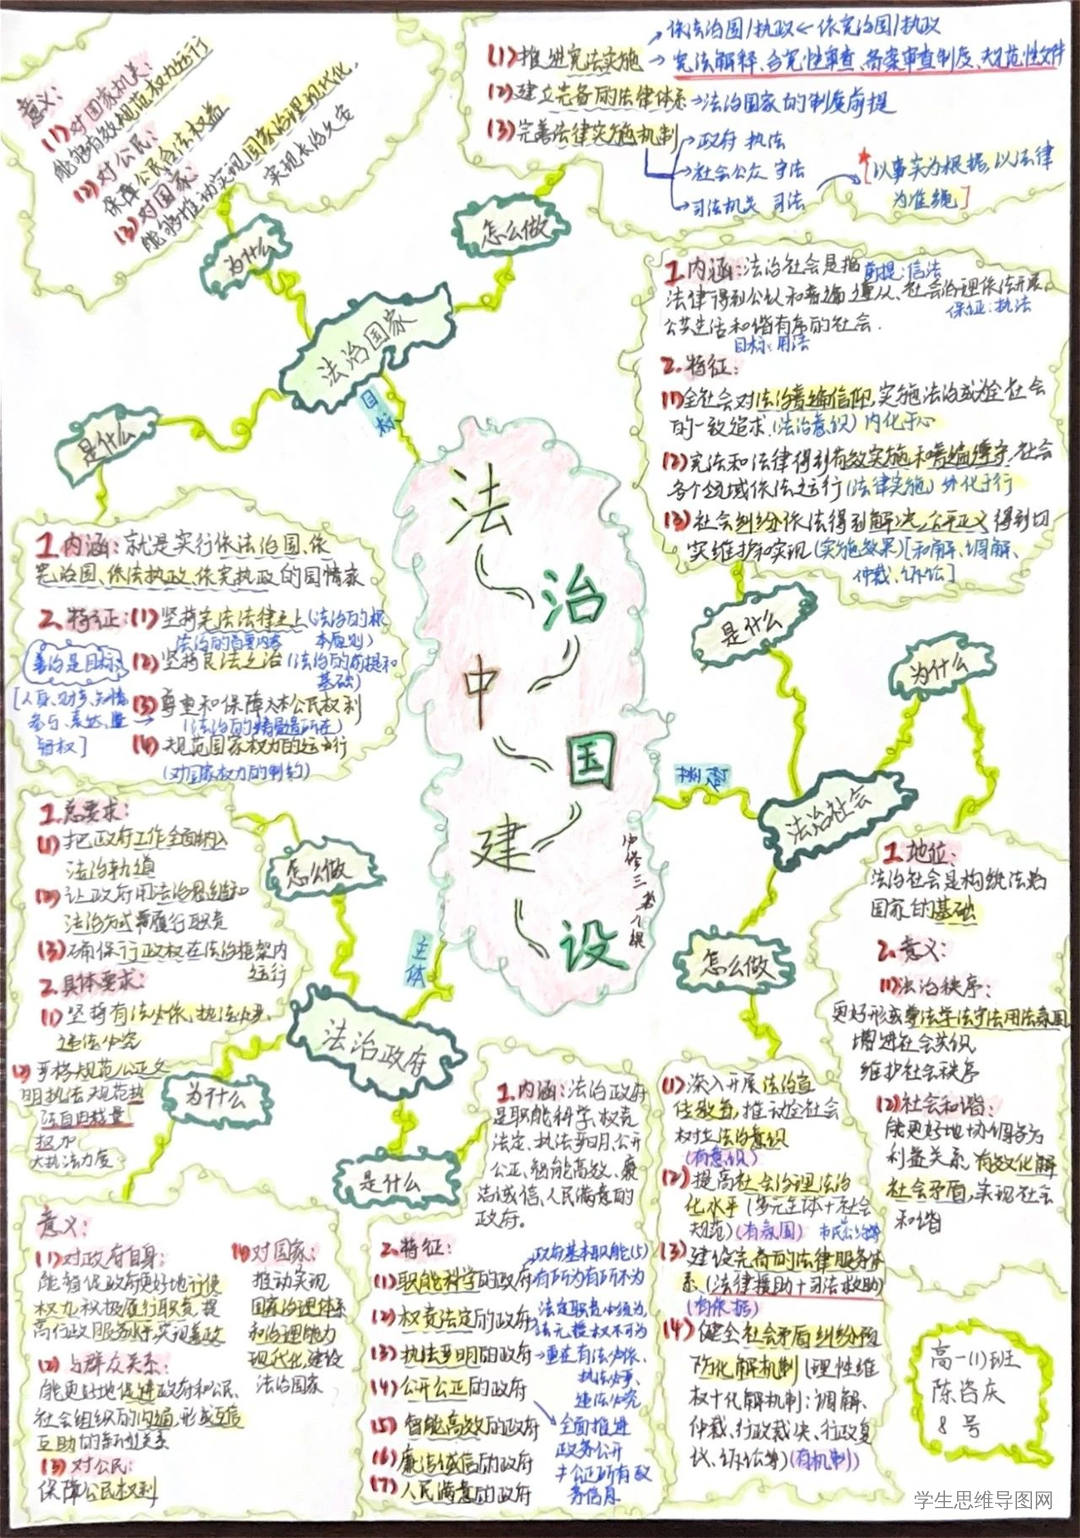 法
治
中
国
建
设
必修三 第八课
目标
法治国家
为什么
意义：
(1)对国家机关：
能够有效规范权力运行
(2)对公民：
保障公民合法权益
(3)对国家：
能够推动实现国家治理现代化，
实现长治久安
怎么做
(1)推进宪法实施
依法治国/执政←依宪治国/执政
宪法解释、合宪性审查、备案审查制度、规范性文件
(2)建立完备的法律体系→法治国家的制度前提
(3)完善法律实施机制
政府 执法
社会公众 守法
司法机关 司法
★[以事实为根据，以法律
为准绳]
是什么
1.内涵：就是实行依法治国、依
宪治国、依法执政、依宪执政的国情家
2.特征：(1)坚持宪法法律至上(法治的根
本原则)
法治的首要内容
(2)坚持良法之治(法治的前提和
基础)
善治是目标
(3)尊重和保障人本公民权利
(法治的精髓是所在)
(4)规范国家权力的运行
(对国家权力的制约)
法治社会
是什么
1.内涵：法治社会是指
前提：信法
法律得到公认和普遍遵从、社会治理依法开展、
保证：执法
公共生活和谐有序的社会.
目标：用法
2.特征：
(1)全社会对法治普遍信仰，实施法治成为全社会
的一致追求.(法治意识) 内化于心
(2)宪法和法律得到有效实施和普遍遵守，社会
各个领域依法运行(法律实施) 外化于行
(3)社会纠纷依法得到解决，公平正义得到切
实维护和实现(实施效果)[和解、调解、
仲裁、诉讼]
为什么
1.地位：
法治社会是构筑法治
国家的基础
2.意义：
(1)法治秩序：
更好形成尊法学法守法用法氛围
增进社会共识
维护社会秩序
(2)社会和谐：
能更好地协调各方
利益关系，有效化解
社会矛盾，实现社会
和谐
怎么做
(1)深入开展法治宣
传教育，推动全社会
树立法治意识
(有意识)
(2)提高社会治理法治
化水平(多元主体+社会
规范)(有氛围)
(3)建设完备的法律服务体
系、(法律援助+司法救助)
(有依据)
(4)健全社会矛盾纠纷预
防化解机制(理性维
权+化解机制：调解、
仲裁、行政裁决、行政复
议、诉讼等)(有机制)
主体
法治政府
怎么做
1.总要求：
(1)把政府工作全面纳入
法治轨道
(2)让政府用法治思维和
法治方式 履行职责
(3)确保行政权在法治框架内
运行
2.具体要求：
(1)坚持有法必依、执法必严、
违法必究
(2)严格规范公正文
明执法 规范执
法自由裁量
权力
大执法力度
为什么
意义：
(1)对政府自身：
能督促政府更好地行使
权力、积极履行职责，提
高行政服务水平，实现善政
(2)与群众关系：
能更好地促进政府和公民、
社会组织的沟通，形成互信
互助的新型关系
(3)对公民：
保障公民权利
(4)对国家：
推动实现
国家治理体系
和治理能力
现代化，建设
法治国家
是什么
1.内涵：法治政府
是职能科学、权责
法定、执法严明、公开
公正、智能高效、廉
洁诚信、人民满意的
政府。
2.特征：
政府基本职能(5)
(1)职能科学的政府 有所为有所不为
(2)权责法定的政府 法定职责必须为，
法无授权不可为
(3)执法严明的政府→重在有法必依、
执法必严、
违法必究
(4)公开公正的政府
全面推进
政务公开
≠公证所有政
务信息
(5)智能高效的政府
(6)廉洁诚信的政府
(7)人民满意的政府
高一(1)班
8号
学生思维导图网